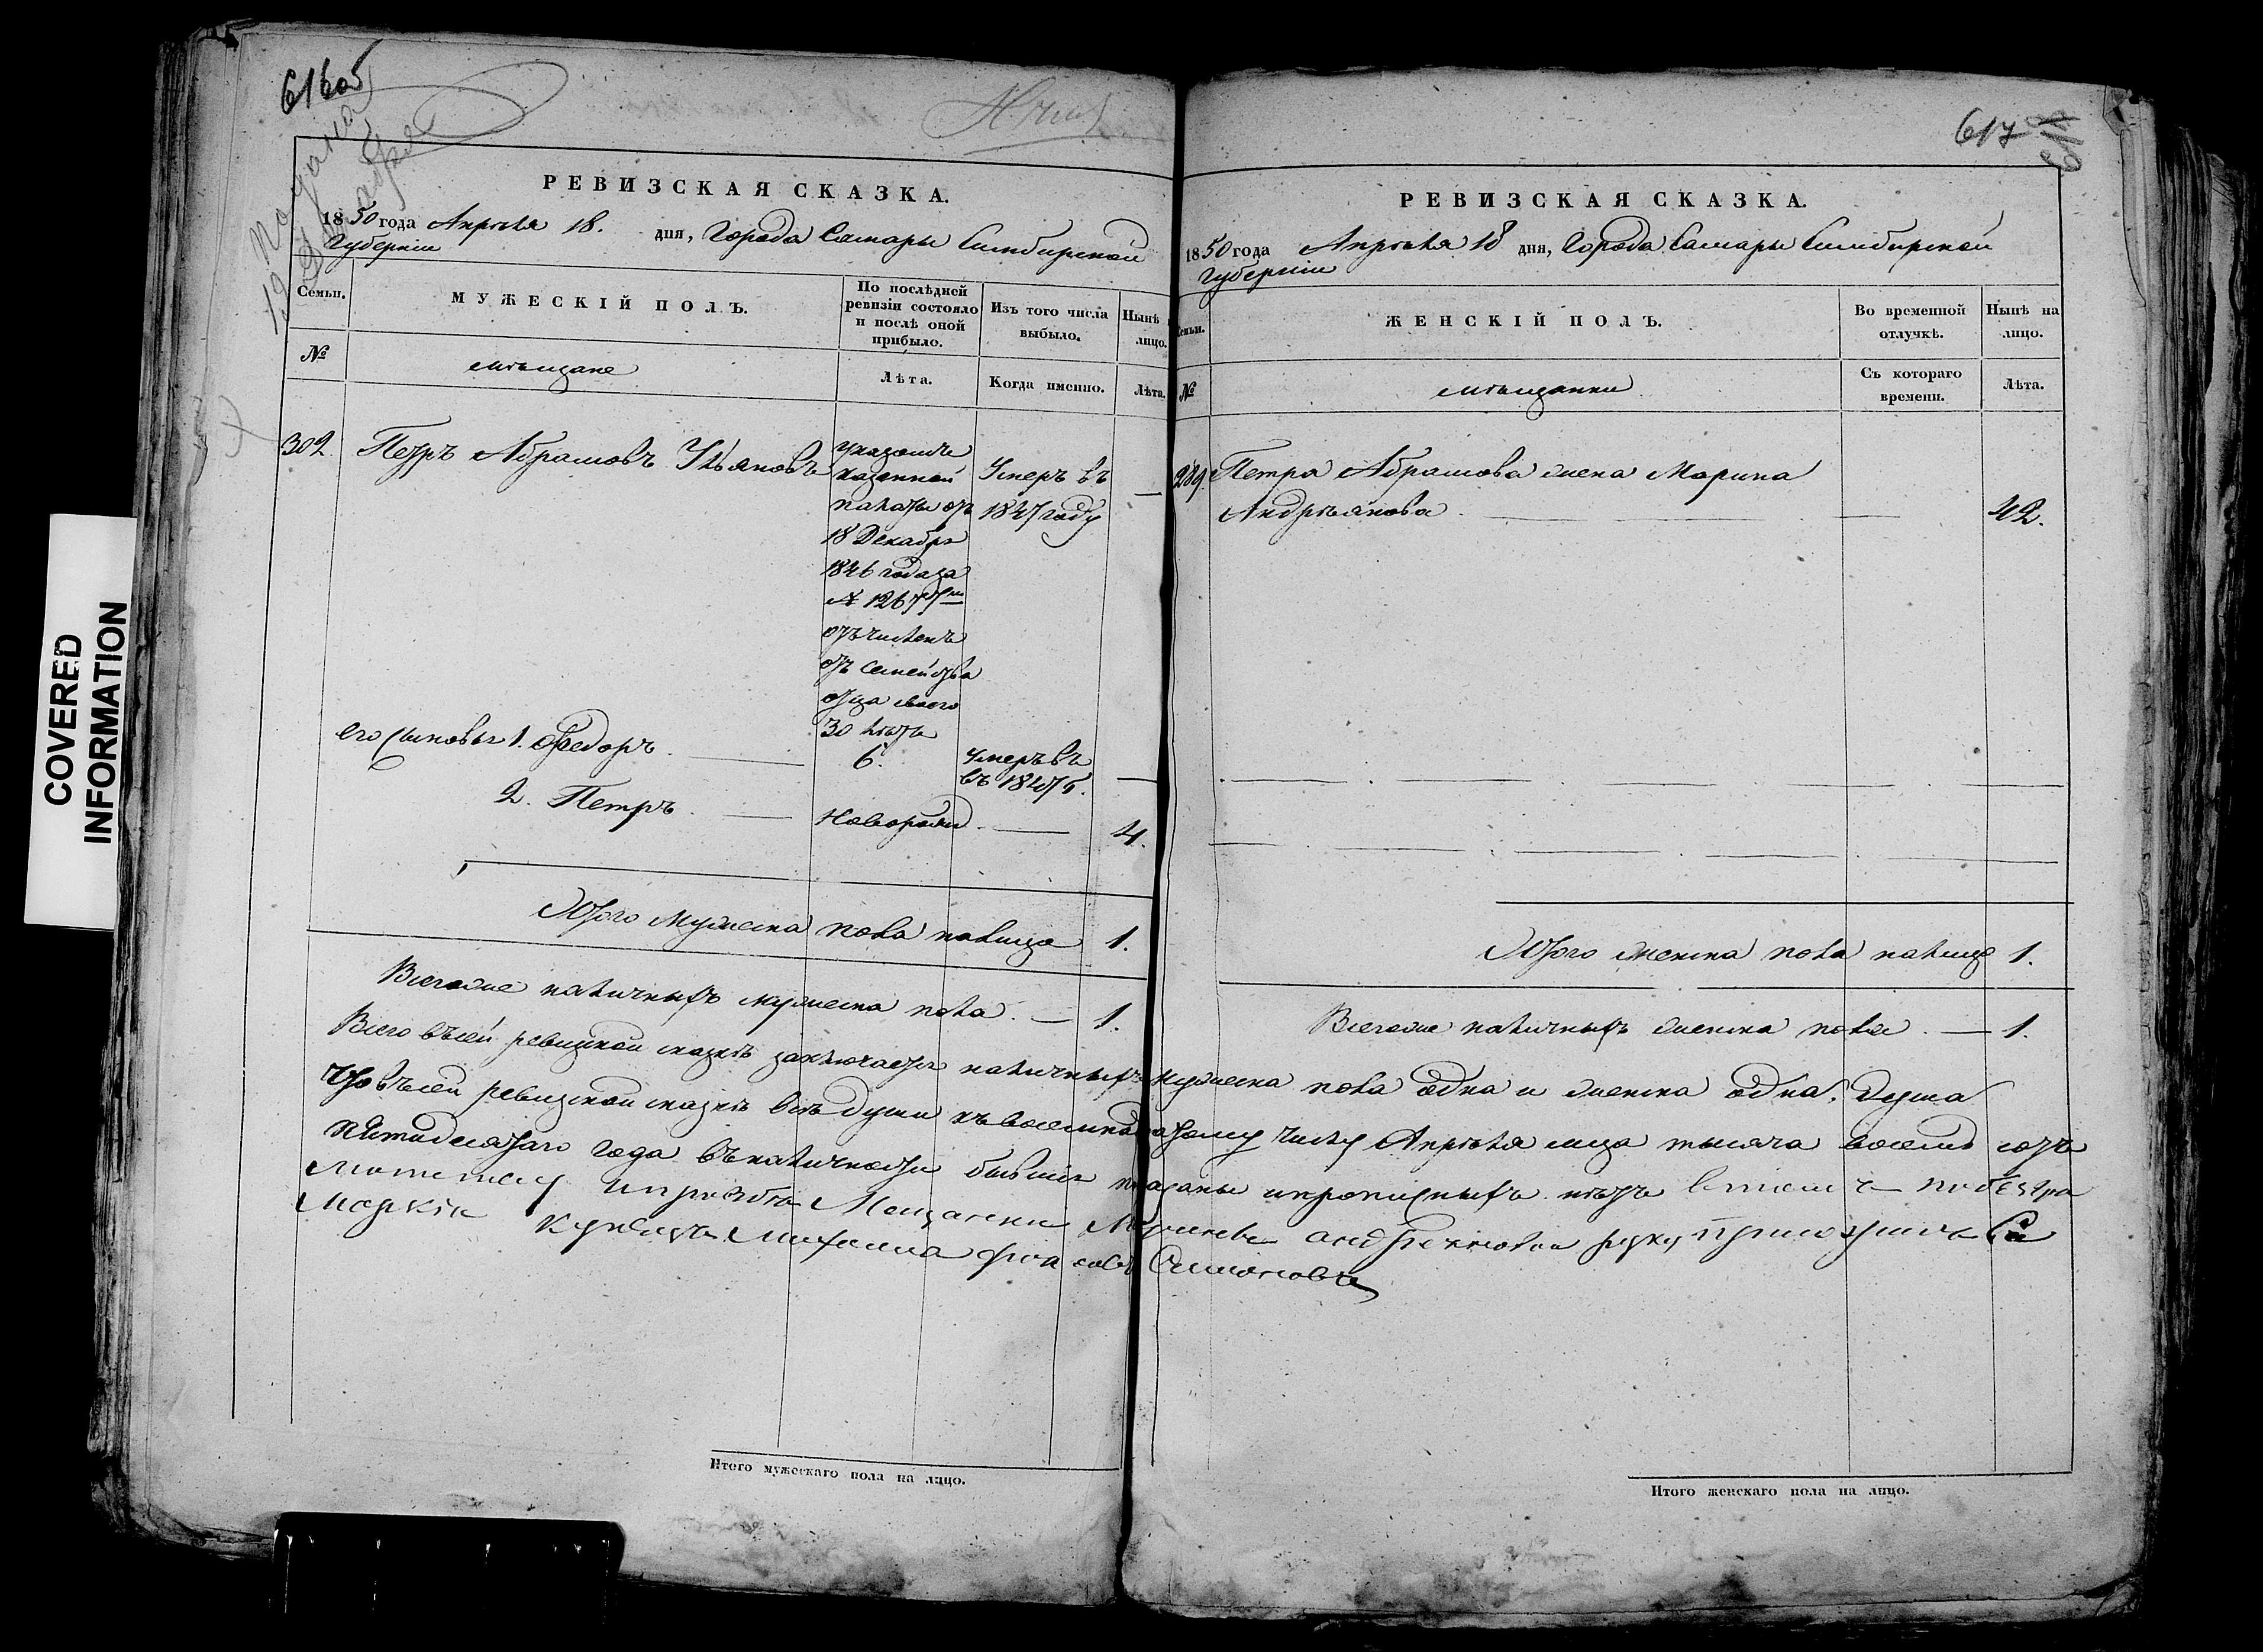 COVERED
INFORMATION
616об
Подана
19 Декабря
РЕВИЗСКАЯ СКАЗКА.
1850 года Апрѣля 18. дня, Города Самары Симбирской
Губерніи
Семьи.
МУЖЕСКІЙ ПОЛЪ.
По послѣдней ревизіи состояло и послѣ оной прибыло.
Изъ того числа выбыло.
Нынѣ лицо.
№
мѣщане
Лѣта.
Когда именно.
Лѣта.
302. Петръ Абрамовъ Ульяновъ
указомъ
казенной
палаты отъ
18 Декабря
1846 года за
№ 12677м
отъчисленъ
отъ семейства
отца своего
30 лѣтъ
Умеръ въ
1847 году
—
его сыновья 1. Федоръ
6.
умеръ въ
въ 184
—
2. Петръ
новорожд.
4.
Итого мужеска пола налицо 1.
Всегоже наличныхъ мужеска пола. — 1.
617
РЕВИЗСКАЯ СКАЗКА.
1850 года Апрѣля 18 дня, Города Самары Симбирской
Губерніи
Семьи.
ЖЕНСКІЙ ПОЛЪ.
Во временной отлучкѣ.
Нынѣ на лицо.
№
мѣщанки
Съ котораго времени.
Лѣта.
289. Петра Абрамова жена Марина
Андрѣянова
42.
Итого женска пола налицо 1.
Всегоже наличныхъ женска пола. — 1.
Всего въсей ревизкой сказкѣ заключается наличныхъ мужеска пола одна и женска одна, душа
Что въсей ревизкой сказкѣ всѣ души къ восемнадцатому числу Апрѣля мца тысяча восемь сотъ
пятидесятаго года въналичности бывшія показаны ипрописныхъ нѣтъ втомъ
Мещанки Марины Андреяновой руку приложилъ Са
марскій купецъ Симоновъ
Итого мужескаго пола на лицо.
Итого женскаго пола на лицо.